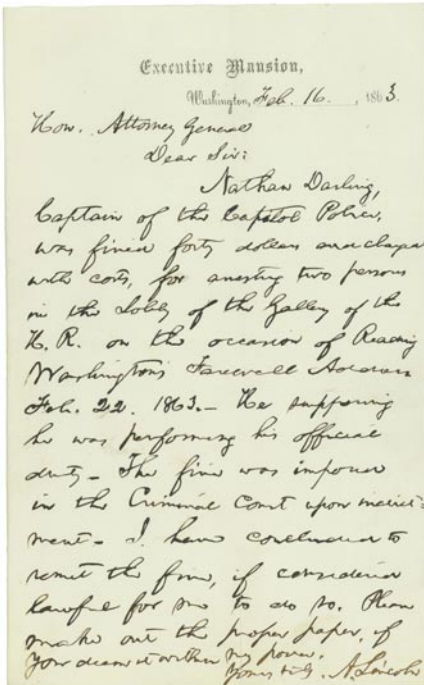 Executive Mansion,
Washington, Feb. 16, 1863.
Hon. Attorney General
Dear Sir:
Nathan Darling,
Captain of the Capitol Police,
was fined forty dollars and charged
with costs, for arresting two persons
in the Lobby of the Gallery of the
H. R. on the occasion of Reading
Washington's Farewell Address
Feb. 22. 1863.— He supposing
he was performing his official
duty— The fine was imposed
in the Criminal Court upon indict-
ment— I have concluded to
remit the fine, if considered
lawful for me to do so. Please
make out the proper paper, if
your deem it within my power.
Yours truly, A. Lincoln